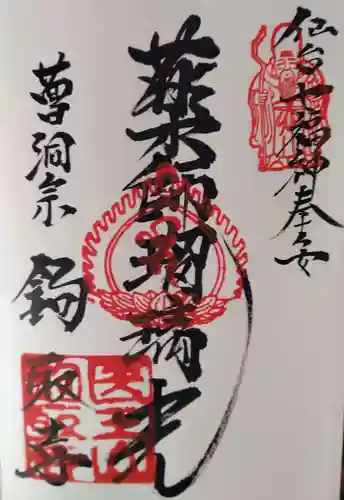 仙台七福神奉安
薬師瑠璃光
曹洞宗
鈎取寺